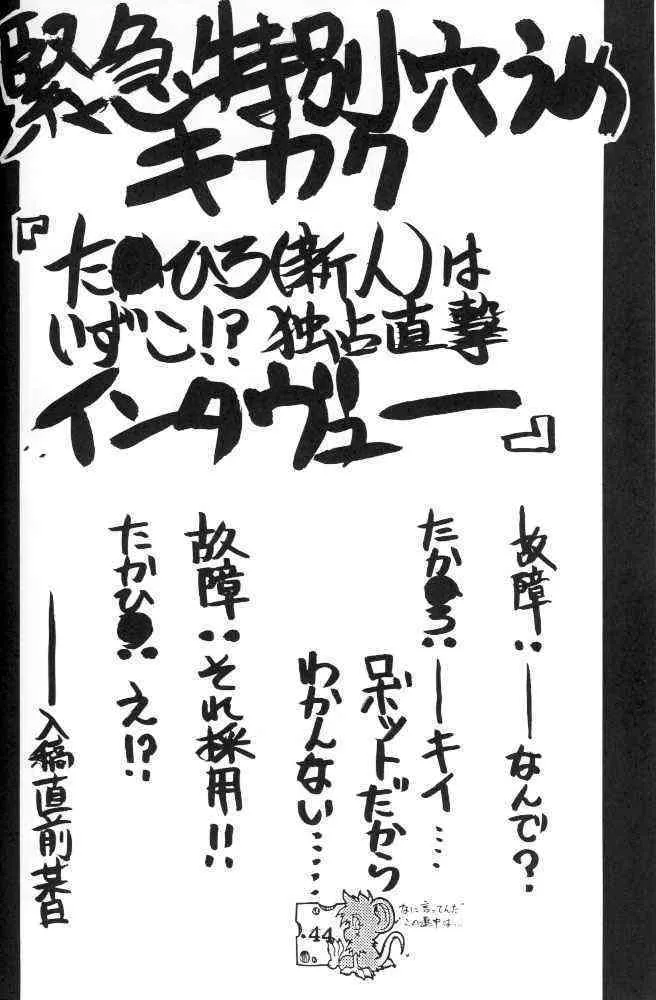 緊急特別穴うめ
キカク
『た●ひろ(新人)は
いずこ!? 独占直撃
インタヴュー』
故障:――なんで?
たか●ろ:――キイ……
ロボットだから
わかんない……
故障:それ採用!!
たかひ●:え!?
――入稿直前某日
なに言ってんだ
この連中は…
44